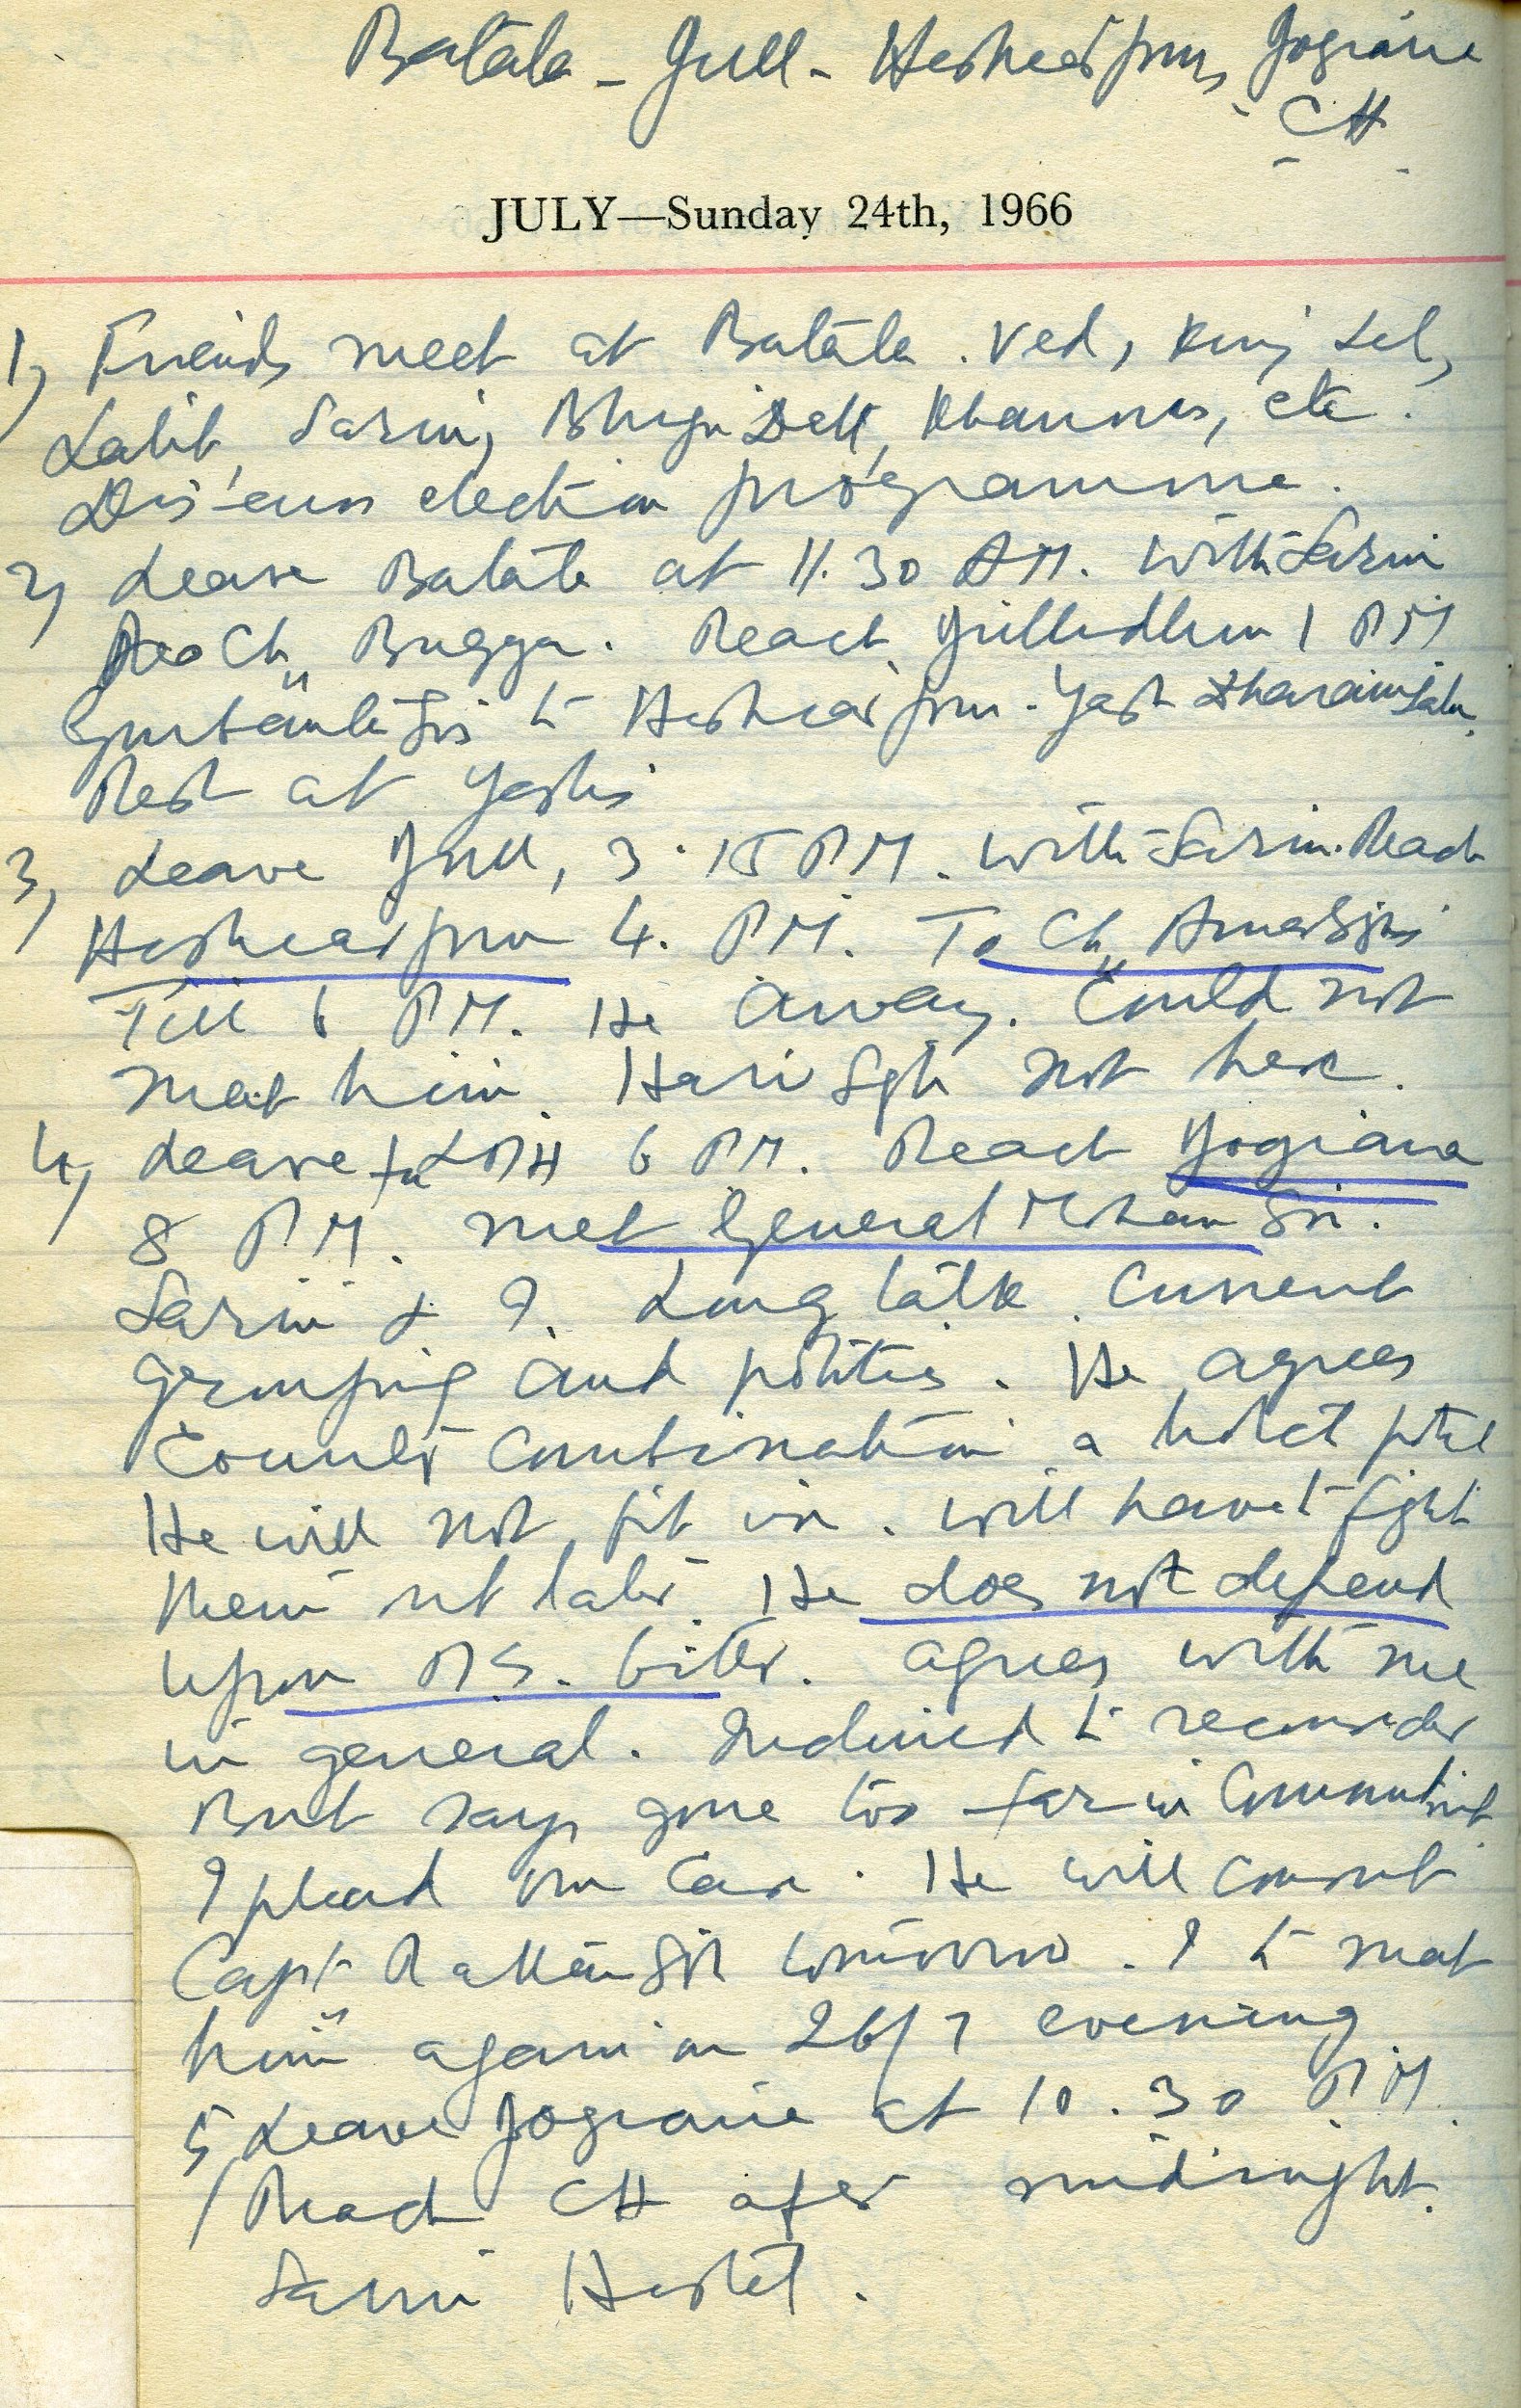 Batala - Jull - Hoshearpur, Jogiana
- CH -
JULY—Sunday 24th, 1966
1) Friends meet at Batala. Ved, Lal,
Lalit, Sarin, Bhrigu Dett, Khannas, etc.
Discuss election programme.
2) Leave Batala at 11.30 AM. with Sarin
Ch. Bugga. Reach Jullundhur 1 PM
to Hoshearpur. Yash Dharamsala.
Rest at Yash's
3) Leave Jull, 3.15 PM. with Sarin. Reach
Hoshearpur 4. PM. To Ch. Amar Sgh's
Till 6 PM. He away. Could not
meet him. Hari Sgh not here.
4) Leave for LDH 6 PM. Reach Jogiana
8 PM. met General Mohan Sin.
Sarin & I. Long talk. Current
grouping and politics. He agrees
Counter Combination a hotch potch
He will not fit in. will have to fight
them out later. He does not depend
upon P.S. Gill. agrees with me
in general. Inclined to reconsider
But says gone too far in Commitment.
I plead our case. He will consult
Capt Rattan Sgh tomorrow. I to meet
him again on 26/7 evening
5) Leave Jogiana at 10.30 PM.
Reach CH after midnight.
Hostel.